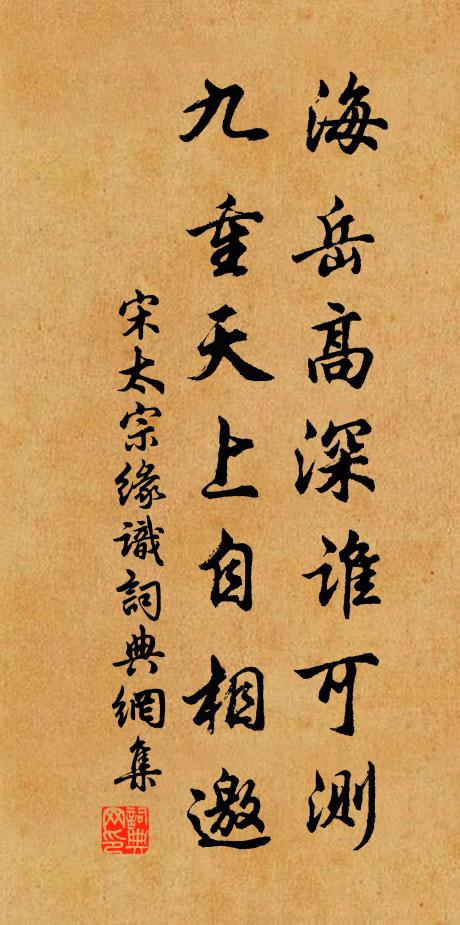 海岳高深谁可測
九重天上自相邀
宋太宗緣識詞典網集
詞典网印